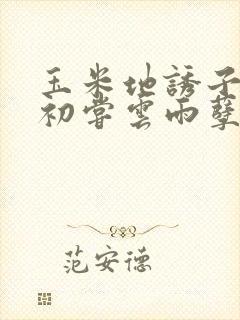 玉米地誘子
初嘗雲雨孽
范安德